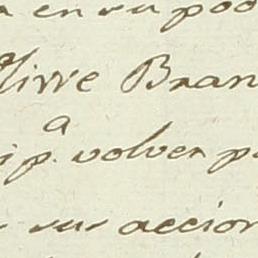 a en su pod
Pierre Bran
a
i p. volver p
sus accion